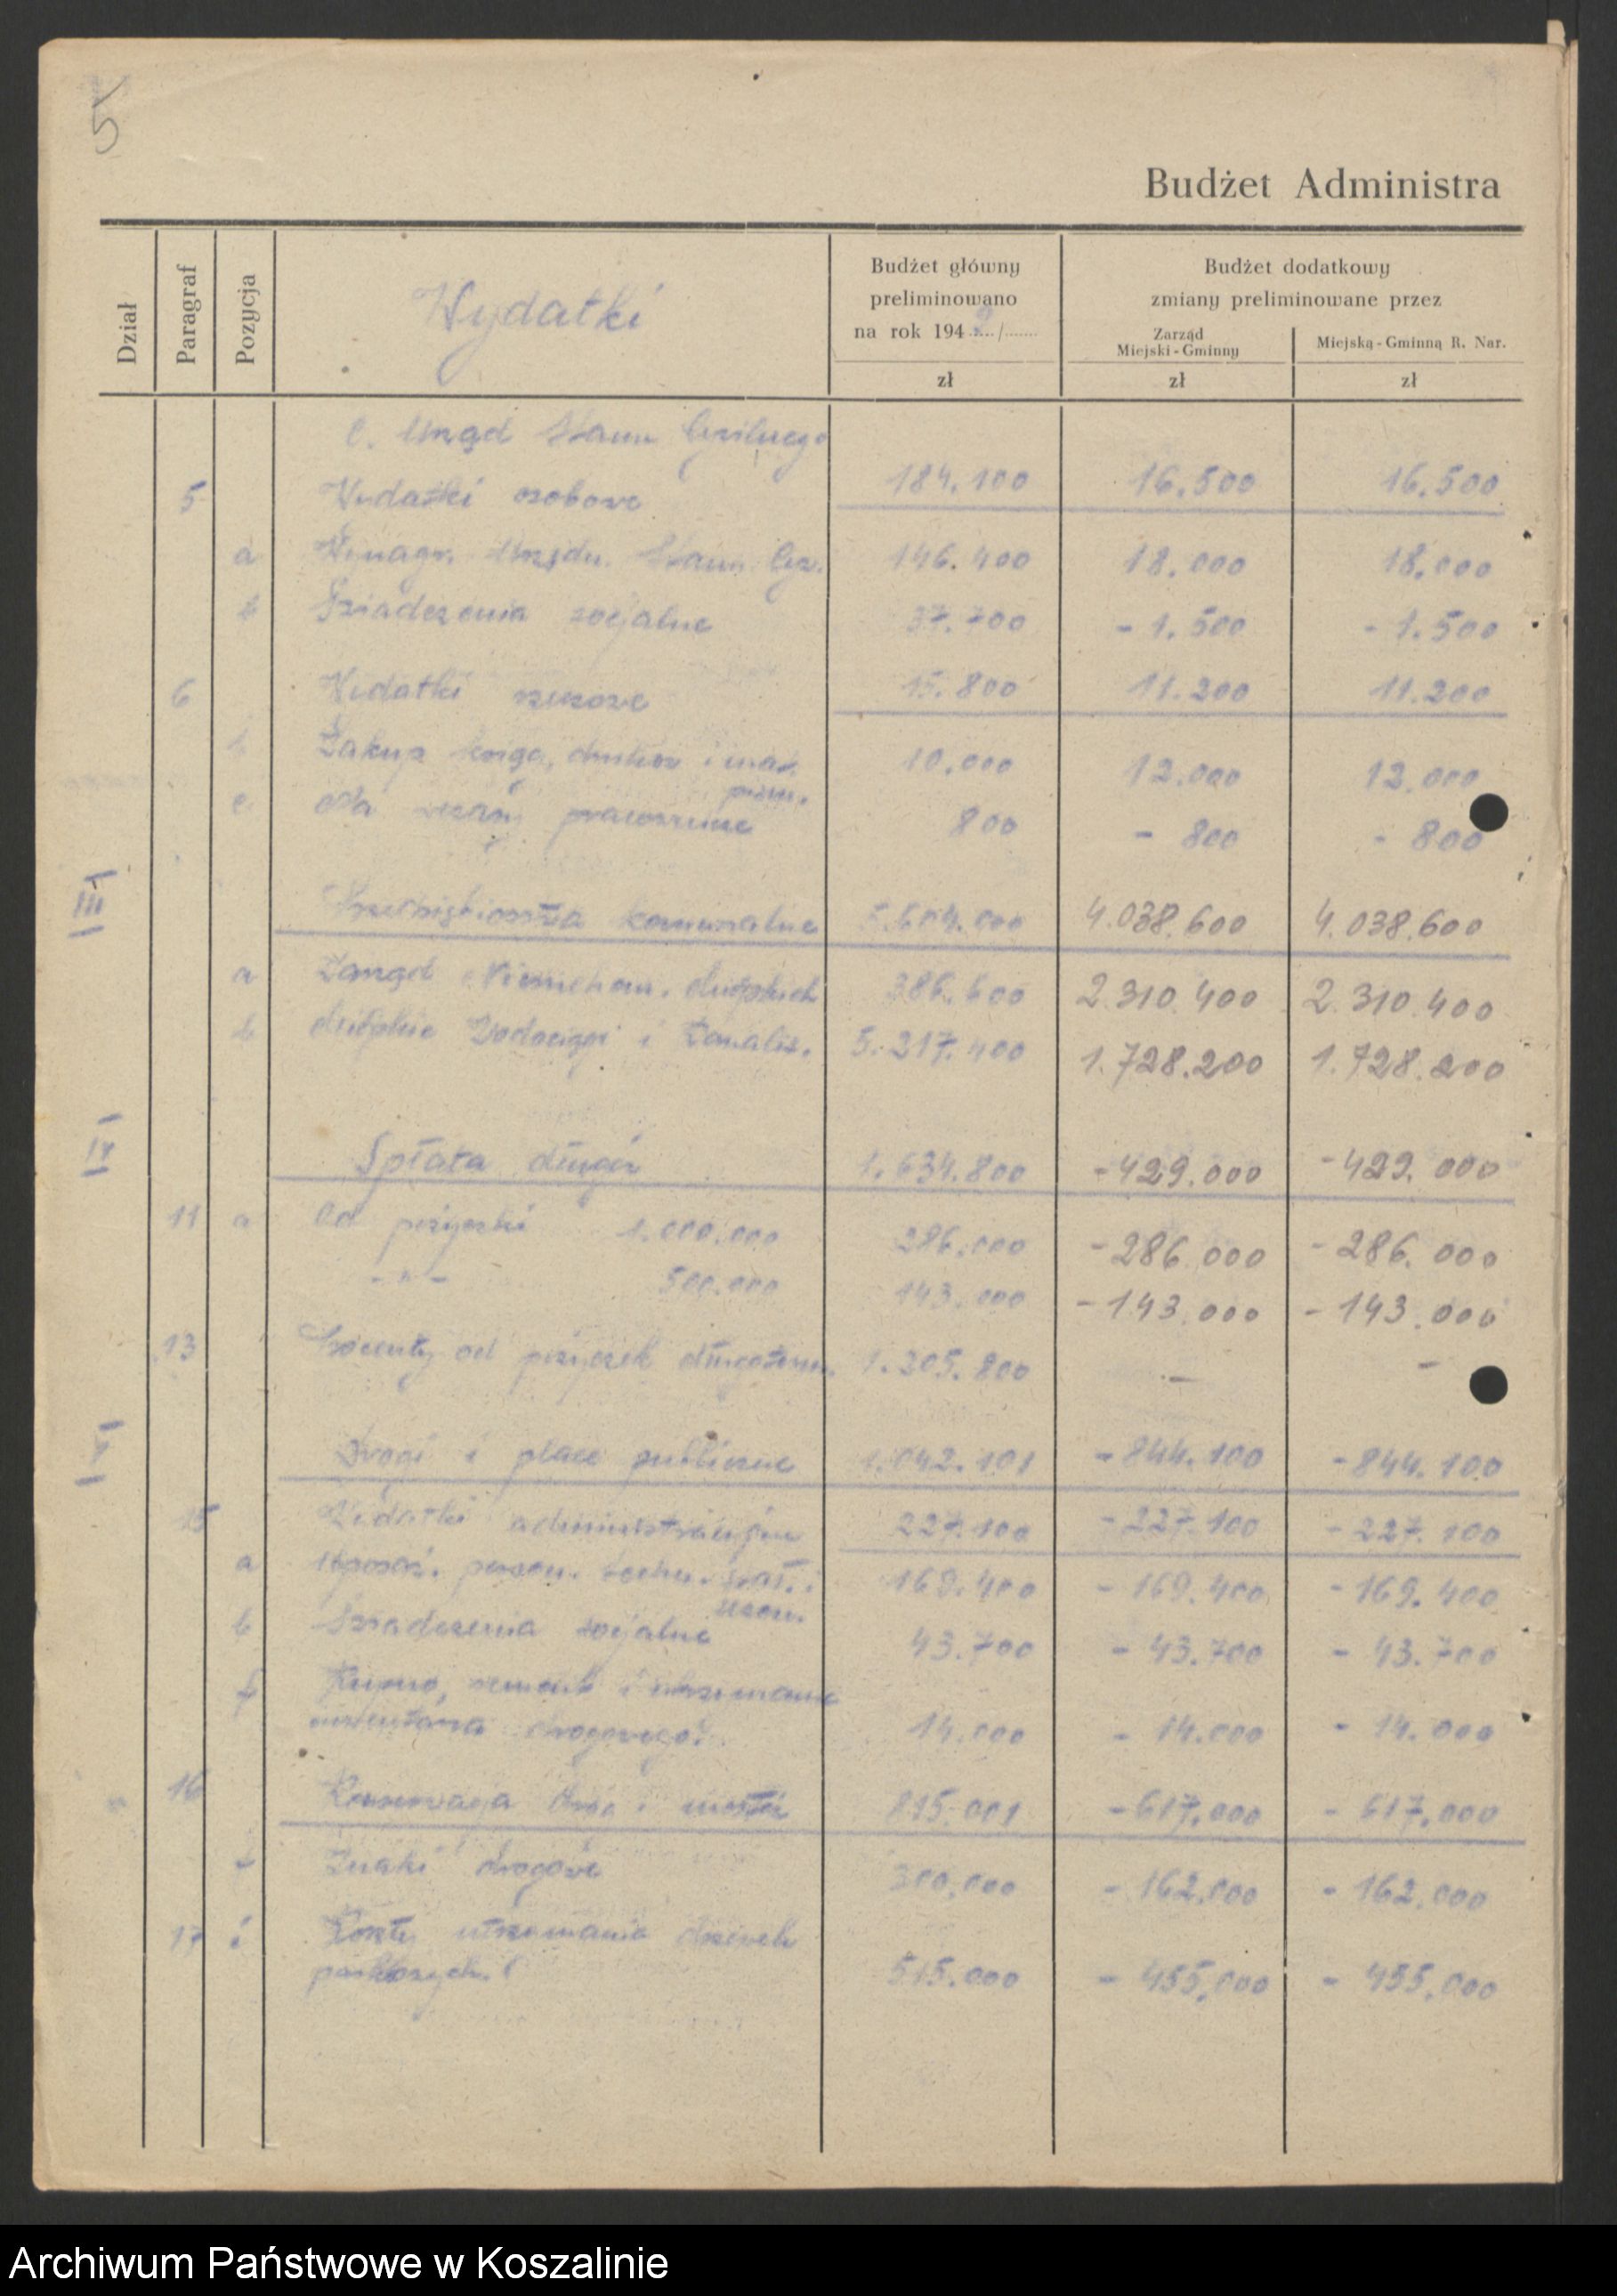 5
Budżet Administra
Dział Paragraf Pozycja Wydatki
Budżet główny
preliminowano
na rok 194
zł
Budżet dodatkowy
zmiany preliminowane przez
Zarząd
Miejski-Gminny
zł
Miejską-Gminną R. Nar.
zł
Urząd Stanu Cywilnego
5 Wydatki osobowe 184.100 16.500 16.500
a Wynagr. Urzędn. Stanu Cyw. 146.400 18.000 18.000
b Świadczenia socjalne 37.700 - 1.500 - 1.500
6 Wydatki rzeczowe 15.800 11.200 11.200
b Zakup ksiąg, druków i mat. 10.000 12.000 12.000
piśm.
e 800 - 800 - 800
III Przedsiębiorstwa komunalne 5.604.000 4.038.600 4.038.600
a Zarząd Nieruchom. Miejskich 386.600 2.310.400 2.310.400
b Miejskie Wodociągi i Kanaliz. 5.217.400 1.728.200 1.728.200
IV Spłata długów 1.634.800 -429.000 -429.000
11 a Od pożyczki 1.000.000 286.000 -286.000 -286.000
-"- 500.000 143.000 -143.000 -143.000
13 Procenty od pożyczek długoterm. 1.205.800 - -
V Drogi i place publiczne 1.042.101 -844.100 -844.100
15 Wydatki administracyjne 227.100 -227.100 -227.100
a Uposaż. person. techn. stał. i 169.400 - 169.400 - 169.400
sezon.
b Świadczenia socjalne 43.700 - 43.700 - 43.700
f Kupno, remont i utrzymanie
inwentarza drogowego 14.000 - 14.000 - 14.000
16 Konserwacja dróg i mostów 815.001 -617.000 - 617.000
Znaki drogowe 300.000 - 162.000 - 162.000
17 i Koszty utrzymania
515.000 - 455.000 - 455.000
Archiwum Państwowe w Koszalinie